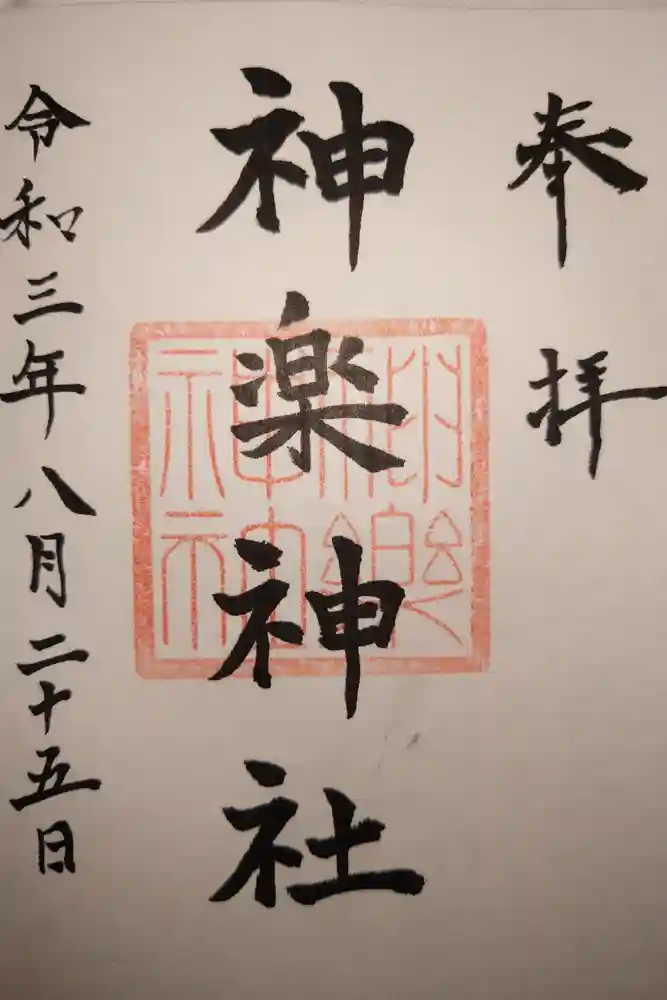 奉拝
神楽神社
令和三年八月二十五日